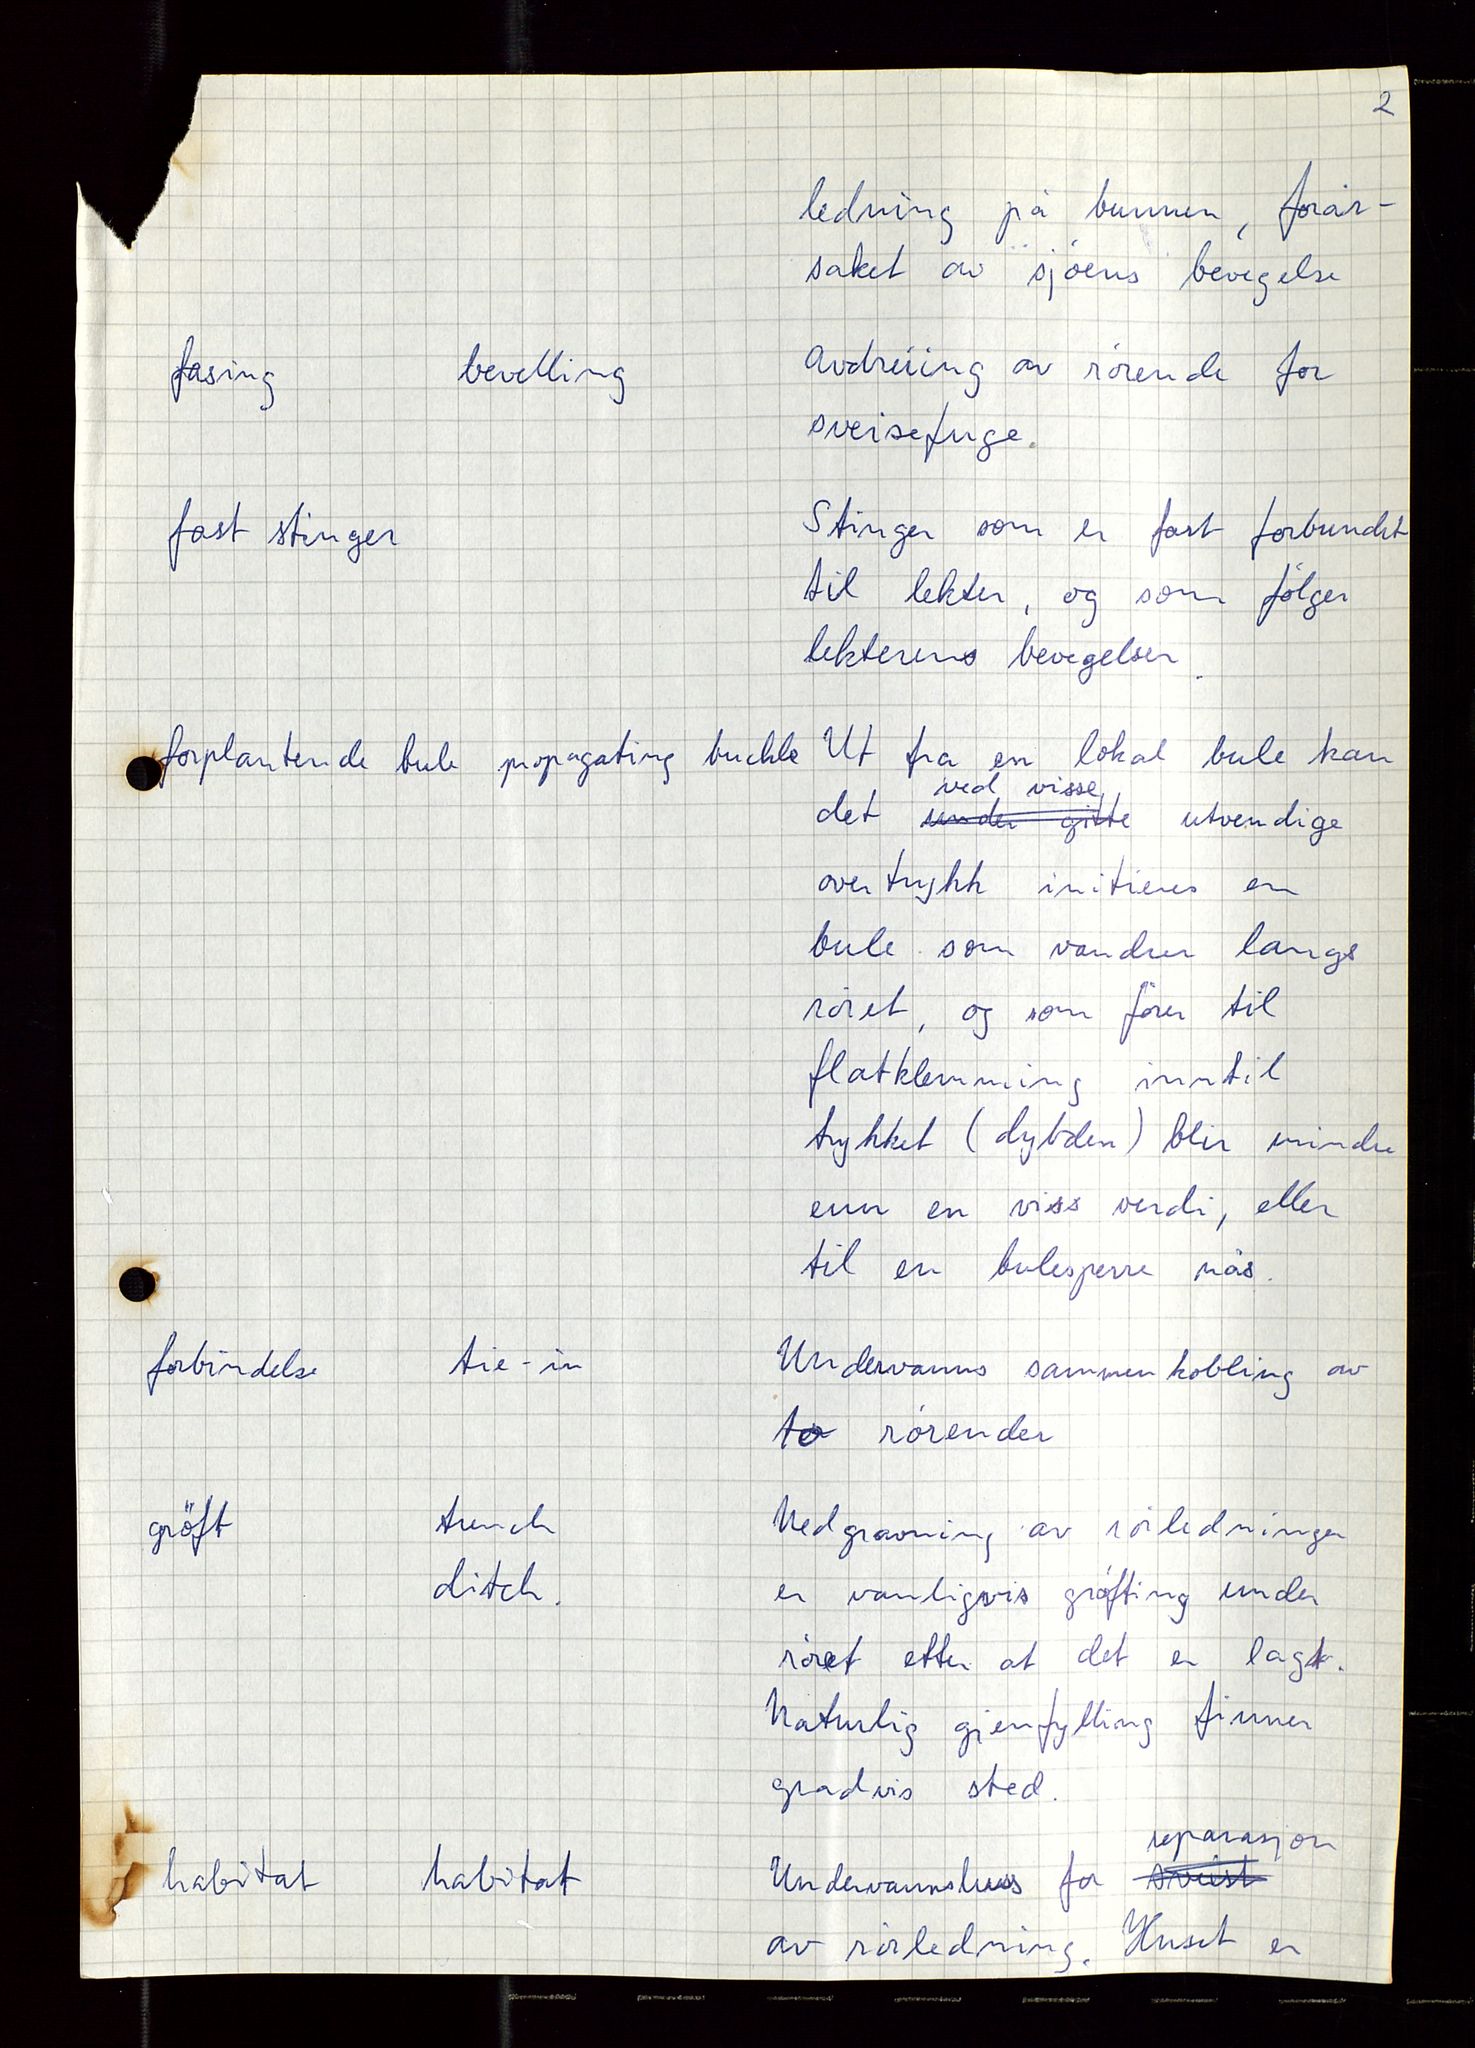 2
ledning på bunnen, forår-
saket av sjøens bevegelse
fasing bevelling Avdreiing av rørende for
sveisefuge.
fast stinger Stinger som er fast forbundet
til lekter, og som følger
lekterens bevegelser.
forplantende bule propagating buckle Ut fra en lokal bule kan
ved visse
det under gitte utvendige
overtrykk initieres en
bule som vandrer langs
røret, og som fører til
flatklemming inntil
trykket (dybden) blir mindre
enn en viss verdi, eller
til en bulesperre nås.
forbindelse tie-in Undervanns sammenkobling av
to rørender
grøft trench Nedgravning av rørledninger
ditch. er vanligvis grøfting under
røret etter at det er lagt.
Naturlig gjenfylling finner
gradvis sted.
reparasjon
habitat habitat Undervannshus for sveist
av rørledning. Huset er